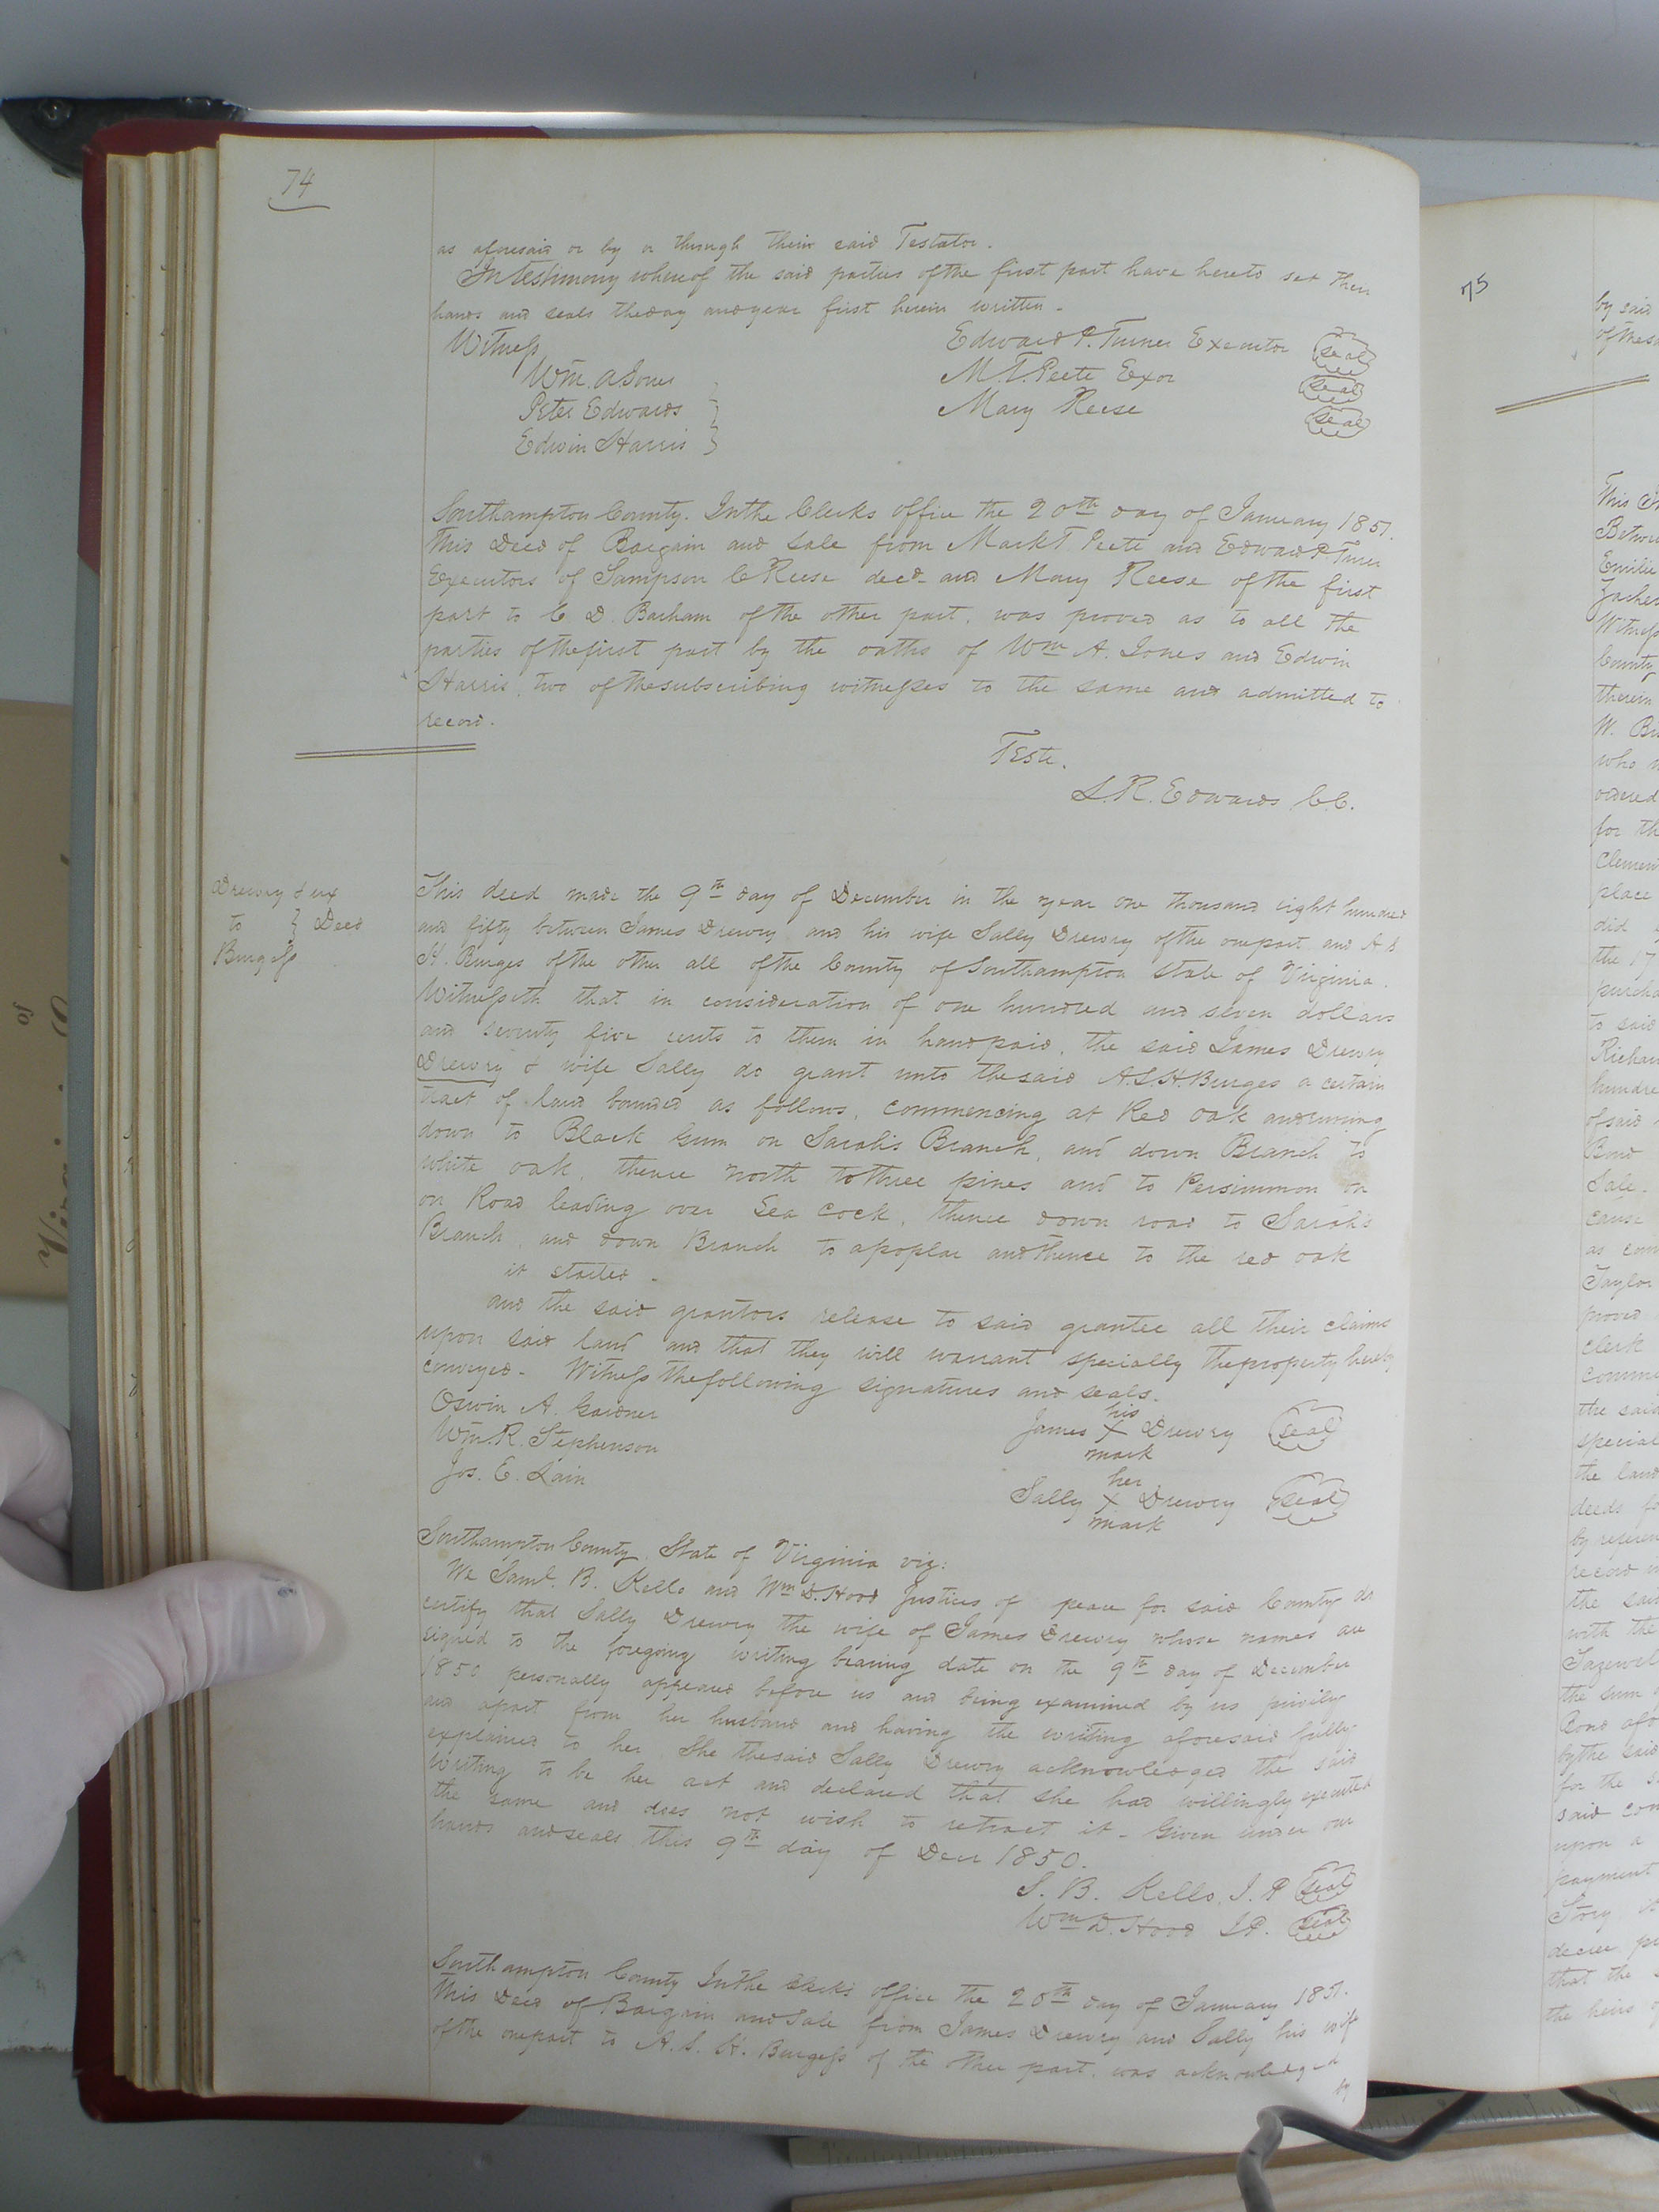 74
as aforesaid or by or through their said Testator.
In testimony whereof the said parties of the first part have hereto set their
hands and seals the day and year first herein written.
Witness
Edward P. Turner Executor seal
Wm. A Jones
M. T. Peete Exor seal
Peter Edwards
Mary Reese seal
Edwin Harris
Southampton County. In the Clerks office the 20th day of January 1851.
This Deed of Bargain and Sale from Mark T Peete and Edward P Turner
Executors of Sampson C Reese decd. and Mary Reese of the first
part to C D. Barham of the other part, was proved as to all the
parties of the first part by the oaths of Wm A. Jones and Edwin
Harris, two of the subscribing witnesses to the same and admitted to
record.
Teste.
L. R. Edwards C.C.
Drewry & ux
to } Deed
Burgess
This deed made the 9th day of December in the year one thousand eight hundred
and fifty between James Drewry and his wife Sally Drewry of the one part and A. S.
H. Burges of the other all of the County of Southampton State of Virginia.
Witnesseth that in consideration of one hundred and seven dollars
and seventy five cents to them in hand paid, the said James Drewry
Drewry & wife Sally do grant unto the said A. S. H. Burges a certain
tract of land bounded as follows, commencing at Red oak and runing
down to Black Gum on Sarah's Branch, and down Branch to
white oak, thence North to three pines and to Persimmon on
on Road leading over Sea cock, thence down road to Sarah's
Branch, and down Branch to a poplar and thence to the red oak
it started.
and the said grantors release to said grantee all their claims
upon said land and that they will warrant specially the property hereby
conveyed. Witness the following signatures and seals.
Oswin A. Gardner
his
Wm. R. Stephenson
James X Drewry seal
mark
Jos. E. Lain
her
Sally X Drewry seal
mark
Southampton County State of Virginia viz:
We Saml. B. Kello and Wm D. Hood Justices of peace for said County do
certify that Sally Drewry the wife of James Drewry whose names are
signed to the foregoing writing bearing date on the 9th day of December
1850 personally appeared before us and being examined by us privily
and apart from her husband and having the writing aforesaid fully
explained to her, She the said Sally Drewry acknowledged the said
writing to be her act and declared that she had willingly executed
the same and does not wish to retract it. Given under our
hands and seals this 9th day of Decr 1850.
S. B. Kello, J. P seal
Wm D. Hood J P. seal
Southampton County In the Clerks office the 20th day of January 1851.
This Deed of Bargain and Sale from James Drewry and Sally his wife
of the one part to A. S. H. Burgess of the other part, was acknowledged
by
75
by said
of the
This
Betwe
Emilie
Zacher
Witness
County
therein
W.
who
ordered
for th
Clemen
place
did
the 17
purcha
to said
Richar
hundre
of said
Bond
Sale.
cause
as com
Taylor
proved
Clerk
Comm
the said
special
the land
deeds
by referen
record
the said
with the
Tazewel
the sum
Bond afo
by the said
for the
said com
upon a
payment
Story
decree
that the
the heirs